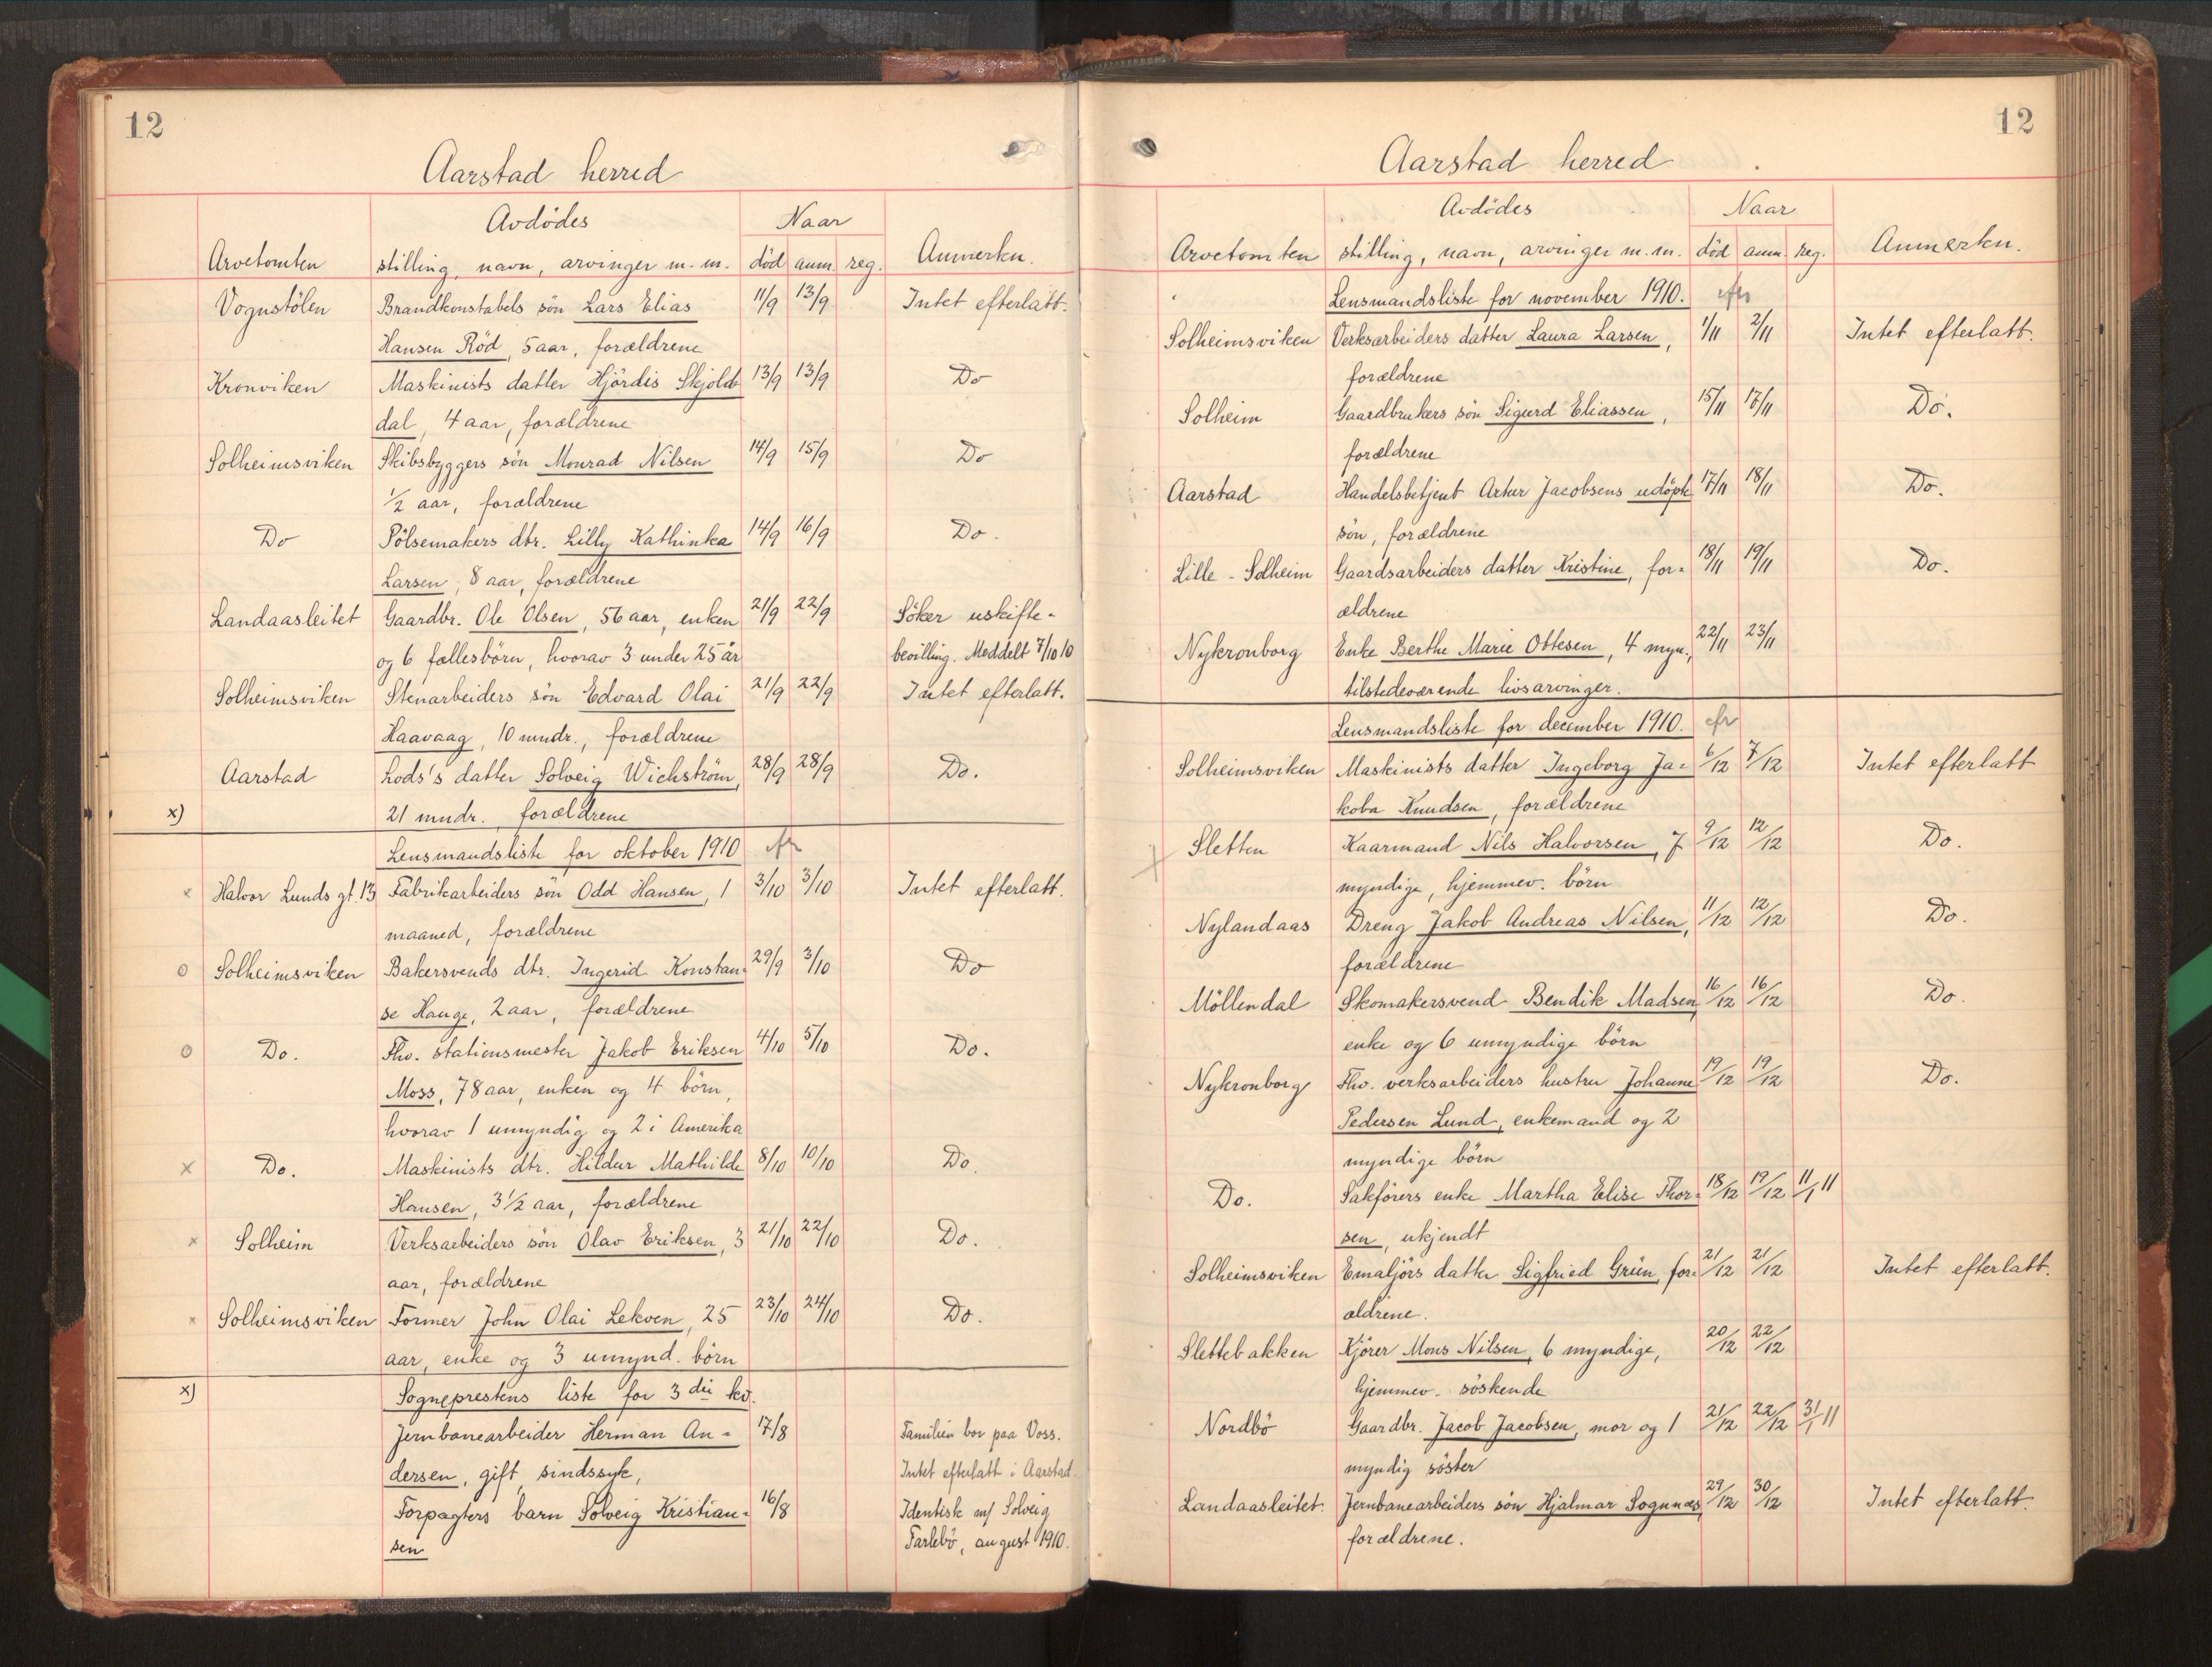 12
Aarstad herred
Avdödes
Naar
Arvetomten stilling, navn, arvinger m. m. död anm. reg. Anmerkn.
Vognstölen Brandkonstabels sön Lars Elias 11/9 13/9 Intet efterlatt.
Hansen Röd, 5 aar, forældrene
Kronviken Maskinists datter Hjördis Skjold- 13/9 13/9 Do
dal, 4 aar, forældrene
Solheimsviken Skibsbyggers sön Monrad Nilsen 14/9 15/9 Do
1/2 aar, forældrene
Do Pölsemakers dtr. Lilly Kathinka 14/9 16/9 Do.
Larsen, 8 aar, forældrene
Landaasleitet Gaardbr. Ole Olsen, 56 aar, enken 21/9 22/9 Söker uskifte-
og 6 fællesbörn, hvorav 3 under 25 år bevilling. Meddelt 7/10 10
Solheimsviken Stenarbeiders sön Edvard Olai 21/9 22/9 Intet efterlatt.
Haavaag, 10 mndr., forældrene
Aarstad Lods's datter Solveig Wichström, 28/9 28/9 Do.
x) 21 mndr. forældrene
Lensmandsliste for oktober 1910
x Halvor Lunds gt. 13 Fabrikarbeiders sön Odd Hansen, 1 3/10 3/10 Intet efterlatt.
maaned, forældrene
o Solheimsviken Bakersvends dtr. Ingerid Konstan- 29/9 3/10 Do
se Hauge, 2 aar, forældrene
o Do. Fhv. stationsmester Jakob Eriksen 4/10 5/10 Do.
Moss, 78 aar, enken og 4 börn,
hvorav 1 umyndig og 2 i Amerika
x Do. Maskinists dtr. Hildur Mathilde 8/10 10/10 Do.
Hansen, 3 1/2 aar, forældrene
x Solheim Verksarbeiders sön Olav Eriksen, 3 21/10 22/10 Do.
aar, forældrene
x Solheimsviken Former John Olai Lekven, 25 23/10 24/10 Do.
aar, enke og 3 umynd. börn
x) Sogneprestens liste for 3 die kv.
Jernbanearbeider Herman An- 17/8 Familien bor paa Voss.
dersen, gift, sindssyk, Intet efterlatt i Aarstad.
Forpagters barn Solveig Kristian- 16/8 Identisk m/ Solveig
sen Farlebö, august 1910.
12
Aarstad herred
Avdödes
Naar
Arvetomten stilling, navn, arvinger m. m. död anm. reg. Anmerkn.
Lensmandsliste for november 1910.
Solheimsviken Verksarbeiders datter Laura Larsen, 1/11 2/11 Intet efterlatt.
forældrene
Solheim Gaardbrukers sön Sigurd Eliassen, 15/11 17/11 Do.
forældrene
Aarstad Handelsbetjent Artur Jacobsens udöpte 17/11 18/11 Do.
sön, forældrene
Lille-Solheim Gaardsarbeiders datter Kristine, for- 18/11 19/11 Do.
ældrene
Nykronborg Enke Berthe Marie Ottesen, 4 myn., 22/11 23/11
tilstedeværende livsarvinger.
Lensmandsliste for december 1910.
Solheimsviken Maskinists datter Ingeborg Ja- 6/12 7/12 Intet efterlatt
koba Knudsen, forældrene
Sletten Kaarmand Nils Halvorsen, 7 9/12 12/12 Do.
myndige, hjemmev. börn
Nylandaas Dreng Jakob Andreas Nilsen, 11/12 12/12 Do.
forældrene
Möllendal Skomakersvend Bendik Madsen, 16/12 16/12 Do.
enke og 6 umyndige börn
Nykronborg Fhv. verksarbeiders hustru Johanne 19/12 19/12 Do.
Pedersen Lund, enkemand og 2
myndige börn
Do. Sakförers enke Martha Elise Thor- 18/12 19/12 11/1 11
sen, ukjendt
Solheimsviken Emaljörs datter Sigfried Grün, for- 21/12 21/12 Intet efterlatt.
ældrene.
Slettebakken Kjörer Mons Nilsen, 6 myndige, 20/12 22/12
hjemmev. söskende
Nordbö Gaardbr. Jacob Jacobsen, mor og 1 21/12 22/12 31/1 11
myndig söster
Landaasleitet. Jernbanearbeiders sön Hjalmar Sognnæs, 29/12 30/12 Intet efterlatt.
forældrene.